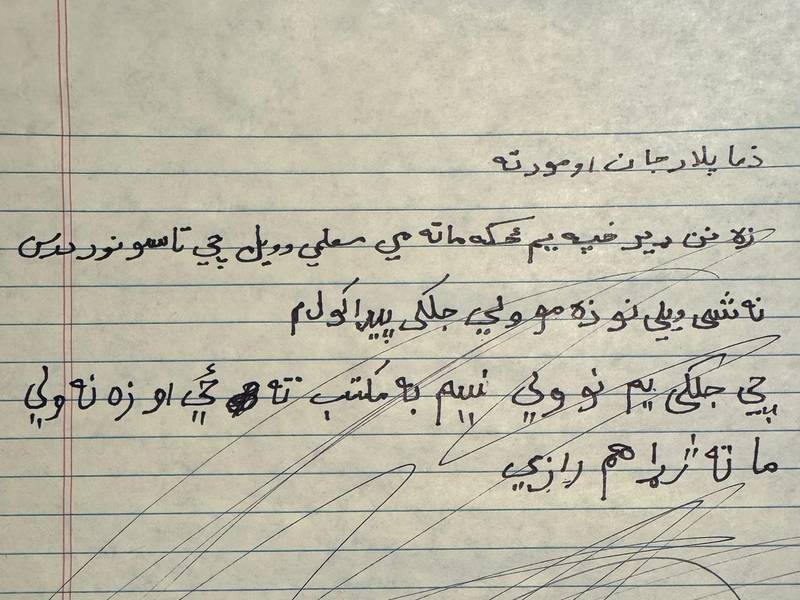 ذما پلار جان او مور ته
زه نن ډير خپه يم ځکه ماته مې معلمې وويل چې تاسو نور درس
نه شی ويلی نو زه مو ولې جلکۍ پيدا کولم
چې جلکۍ يم نو ولې نېيم به مکتب ته ځي او زه نه ولې
ما ته ژړا هم رازي